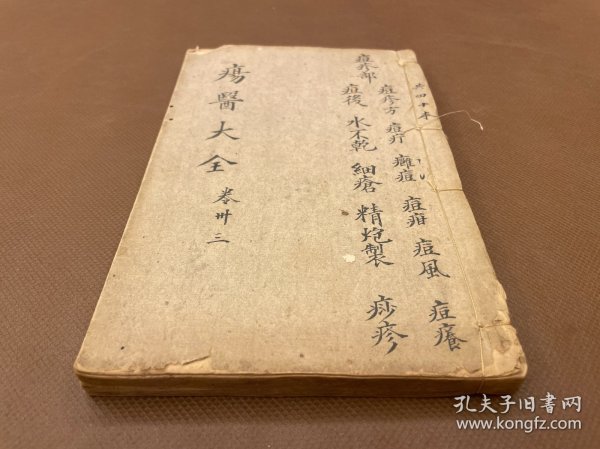 共四十本
痘疹部
痘疹方 痘疔 癰痘 痘疳 痘風 痘癢
痘後 水不乾 細瘡 精炮製 痧疹
瘍醫大全 卷卅三
孔夫子旧书网
www.kongfz.com